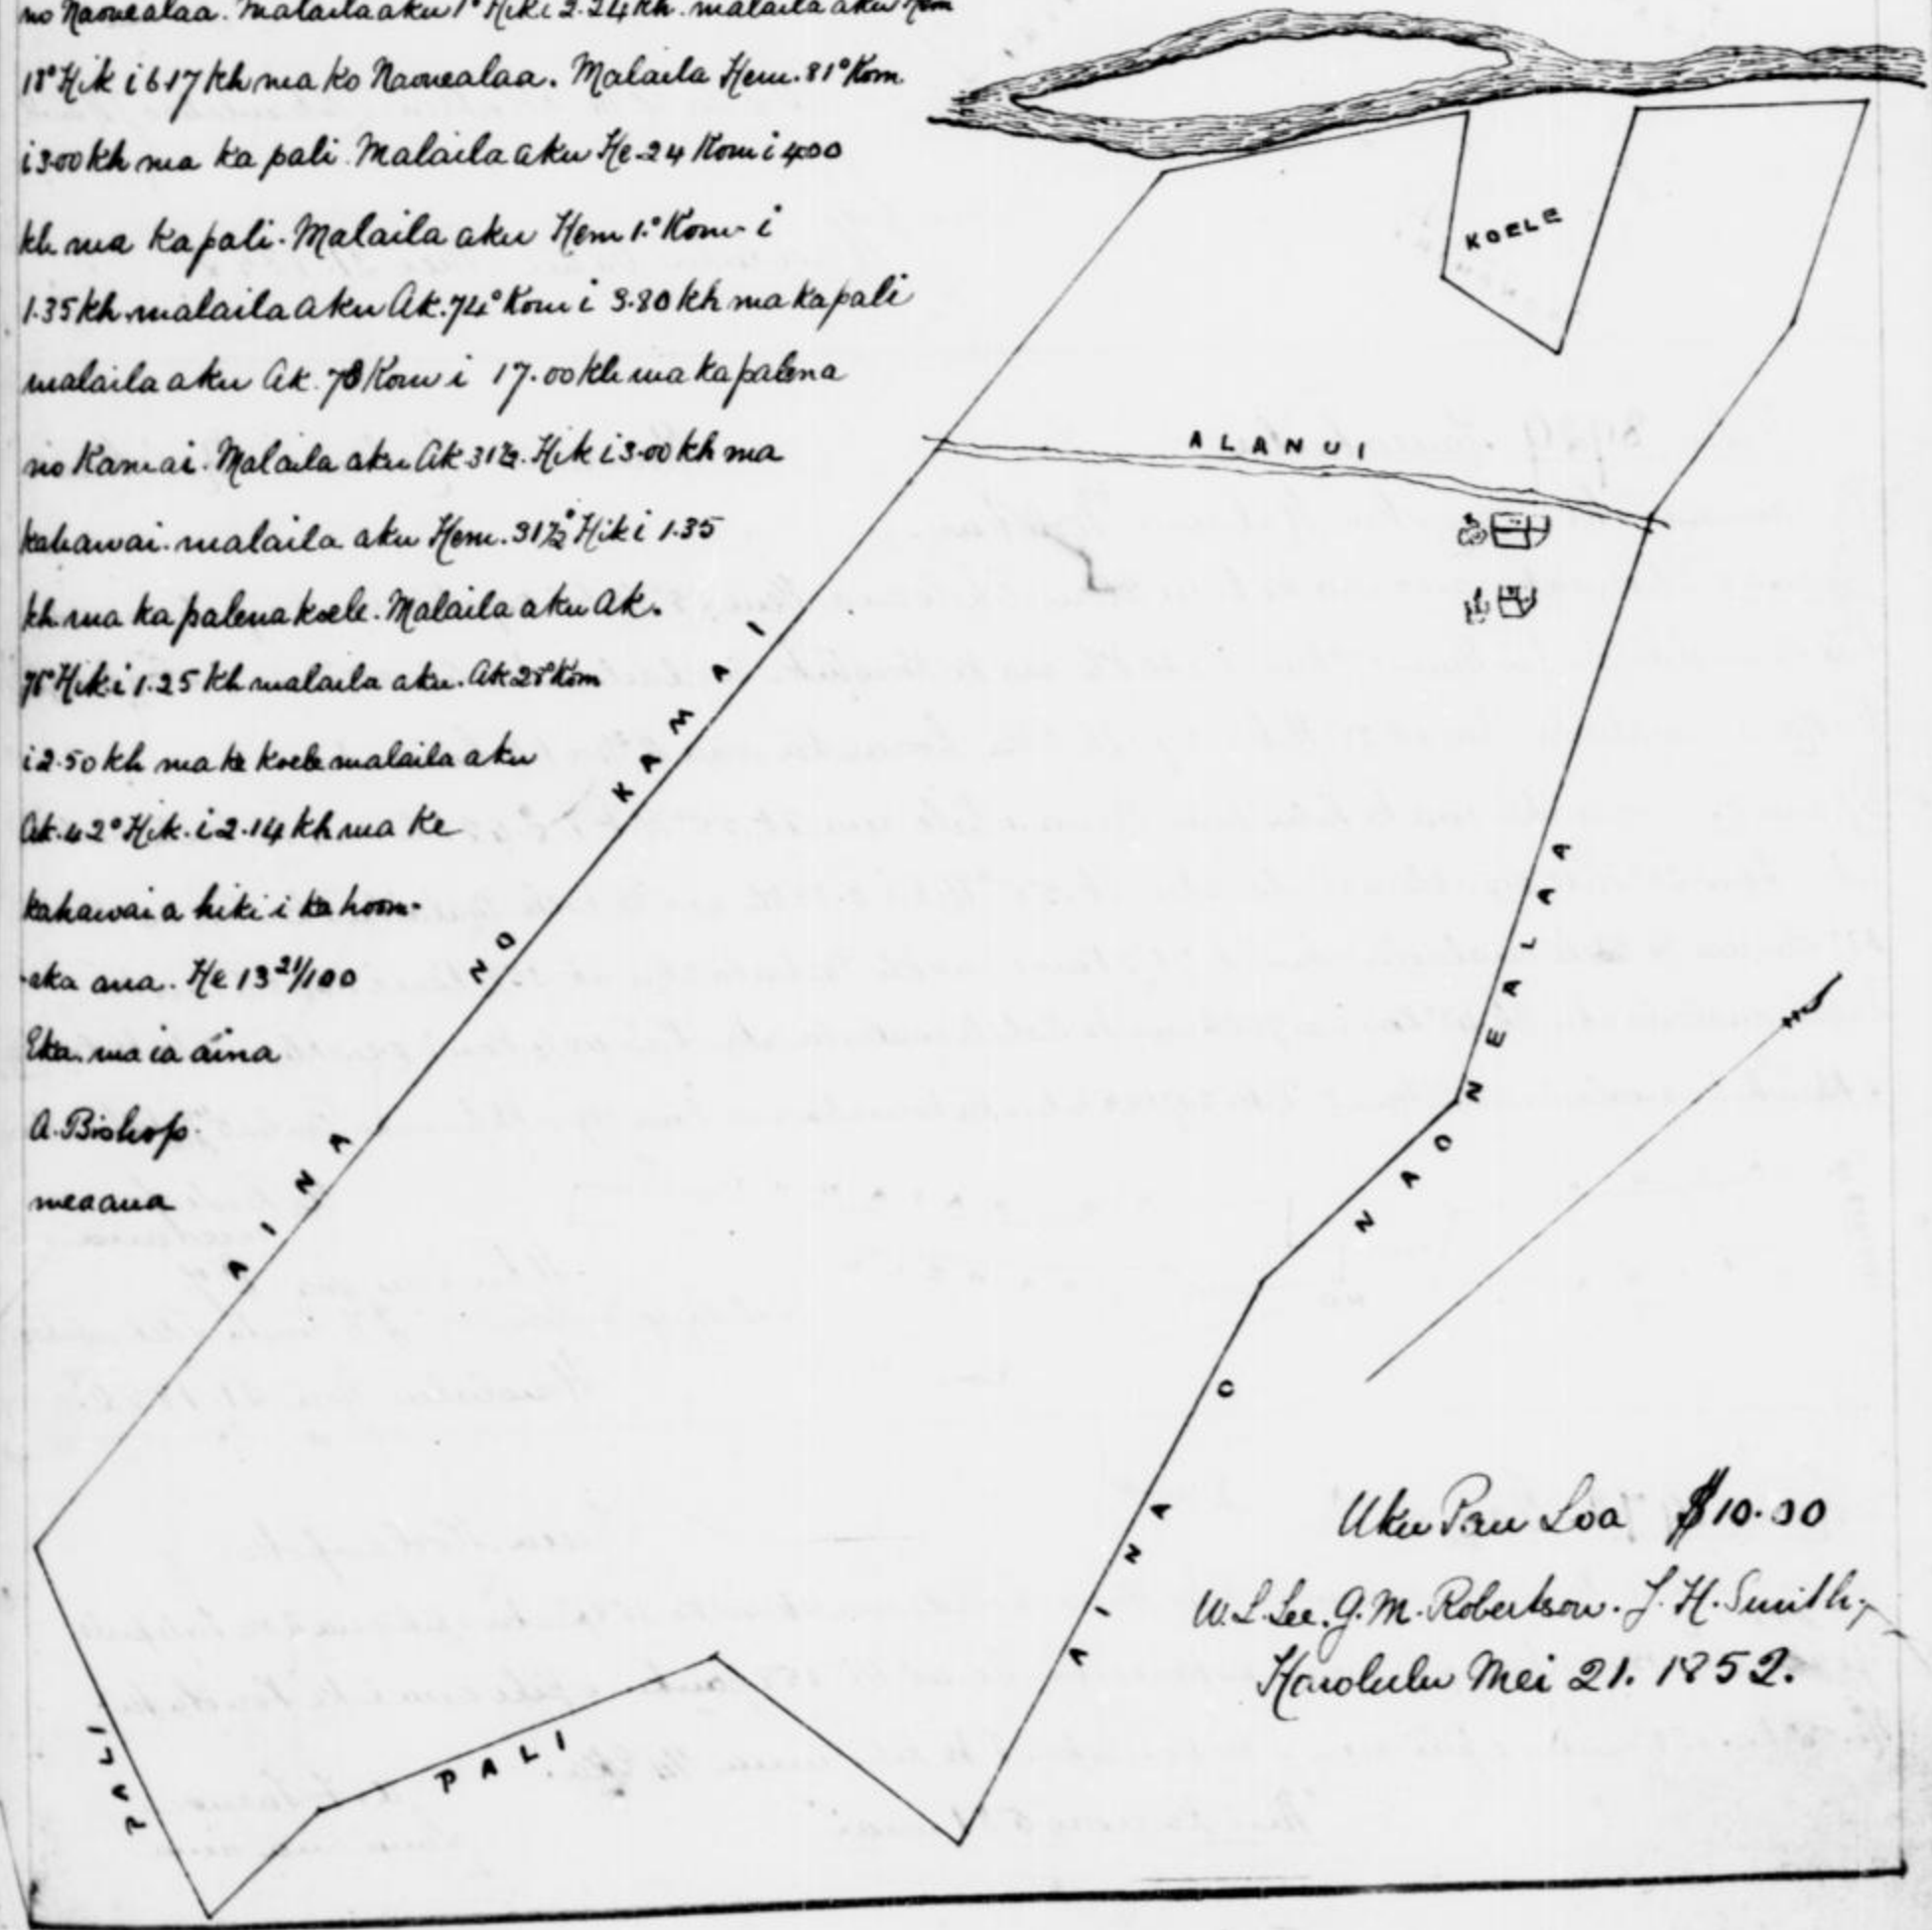 no Naonealaa. Malaila aku 1° Hik i 2.24 kh. malaila aku Hem
18° Hik i 6.17 kh ma ko Naonealaa. Malaila Hem. 81° Kom
i 3.00 kh ma ka pali. Malaila aku He. 24 Kom i 4.00
kh ma ka pali. Malaila aku Hem 1.° Kom. i
1.35 kh. malaila aku Ak. 74° Kom i 3.80 kh ma ka pali
malaila aku Ak. 78 Kom i 17.00 kh ma ka palena
no Kamai. Malaila aku Ak 31½. Hik i 3.00 kh ma
kahawai. malaila aku Hem. 31½° Hik i 1.35
kh. ma ka palena koele. Malaila aku Ak.
78° Hik i 1.25 kh malaila aku. Ak 25° Kom
i 2.50 kh ma ke koele malaila aku
Ak. 42° Hik. i 2.14 kh ma ke
kahawai a hiki i ka hoom-
-aka ana. He 13 21/100
Eka. ma ia aina
A. Bishop.
mea ana
KOELE
ALANUI
AINA NO KAMAI
AINA O NAONEALAA
PALI
PALI
Uku Pau Loa $10.00
W. L. Lee. G. M. Robertson. J. H. Smith.
Honolulu Mei 21. 1852.